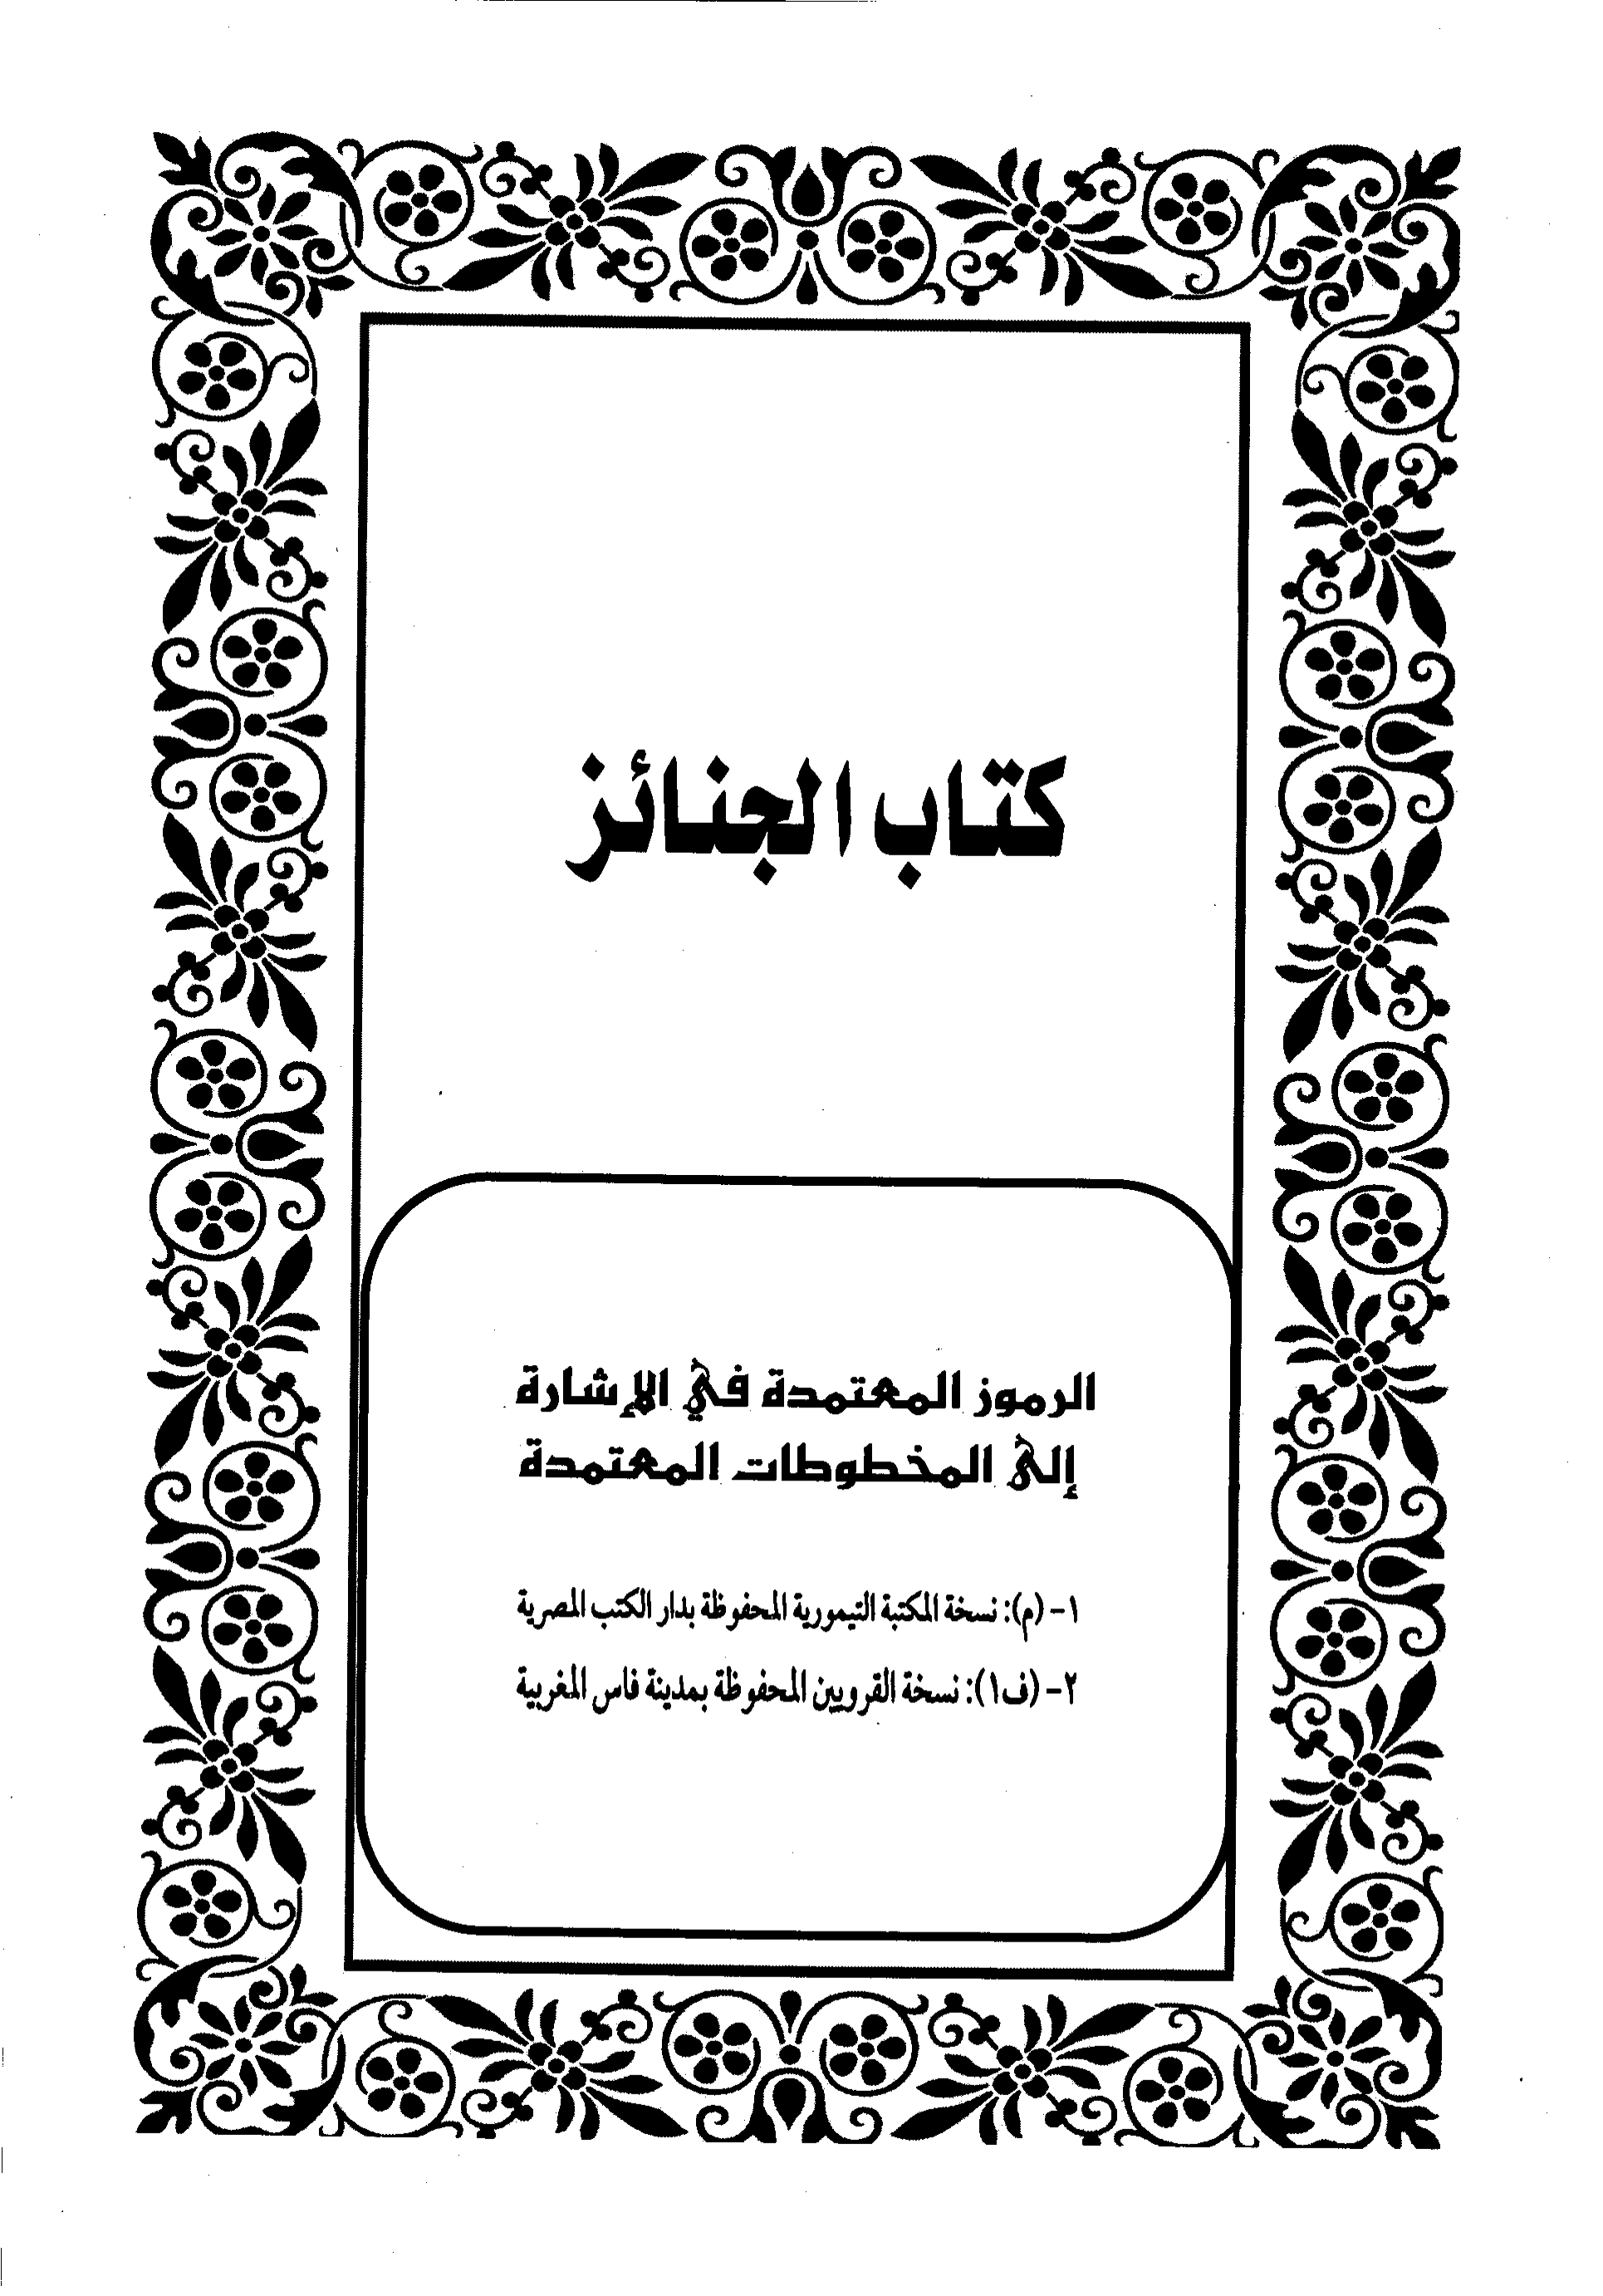 كتاب الجنائز
الرموز المعتمدة في الإشارة
إلى المخطوطات المعتمدة
١- (م): نسخة المكتبة التيمورية المحفوظة بدار الكتب المصرية
٢- (ف١): نسخة القرويين المحفوظة بمدينة فاس المغربية